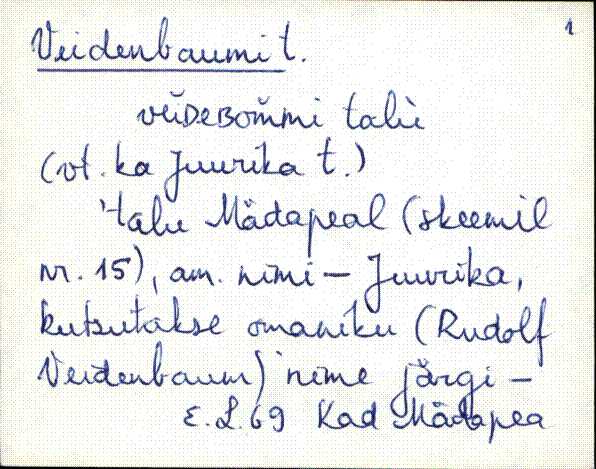 1
Veidenbaumi t.
veiᴅeʙom̆mi talù
(vt. ka Juurika t.)
'talu Mädapeal (skeemil
nr. 15), am. nimi – Juurika,
kutsutakse omaniku (Rudolf
Veidenbaum) nime järgi –
E.L. 69 Kad Mädapea